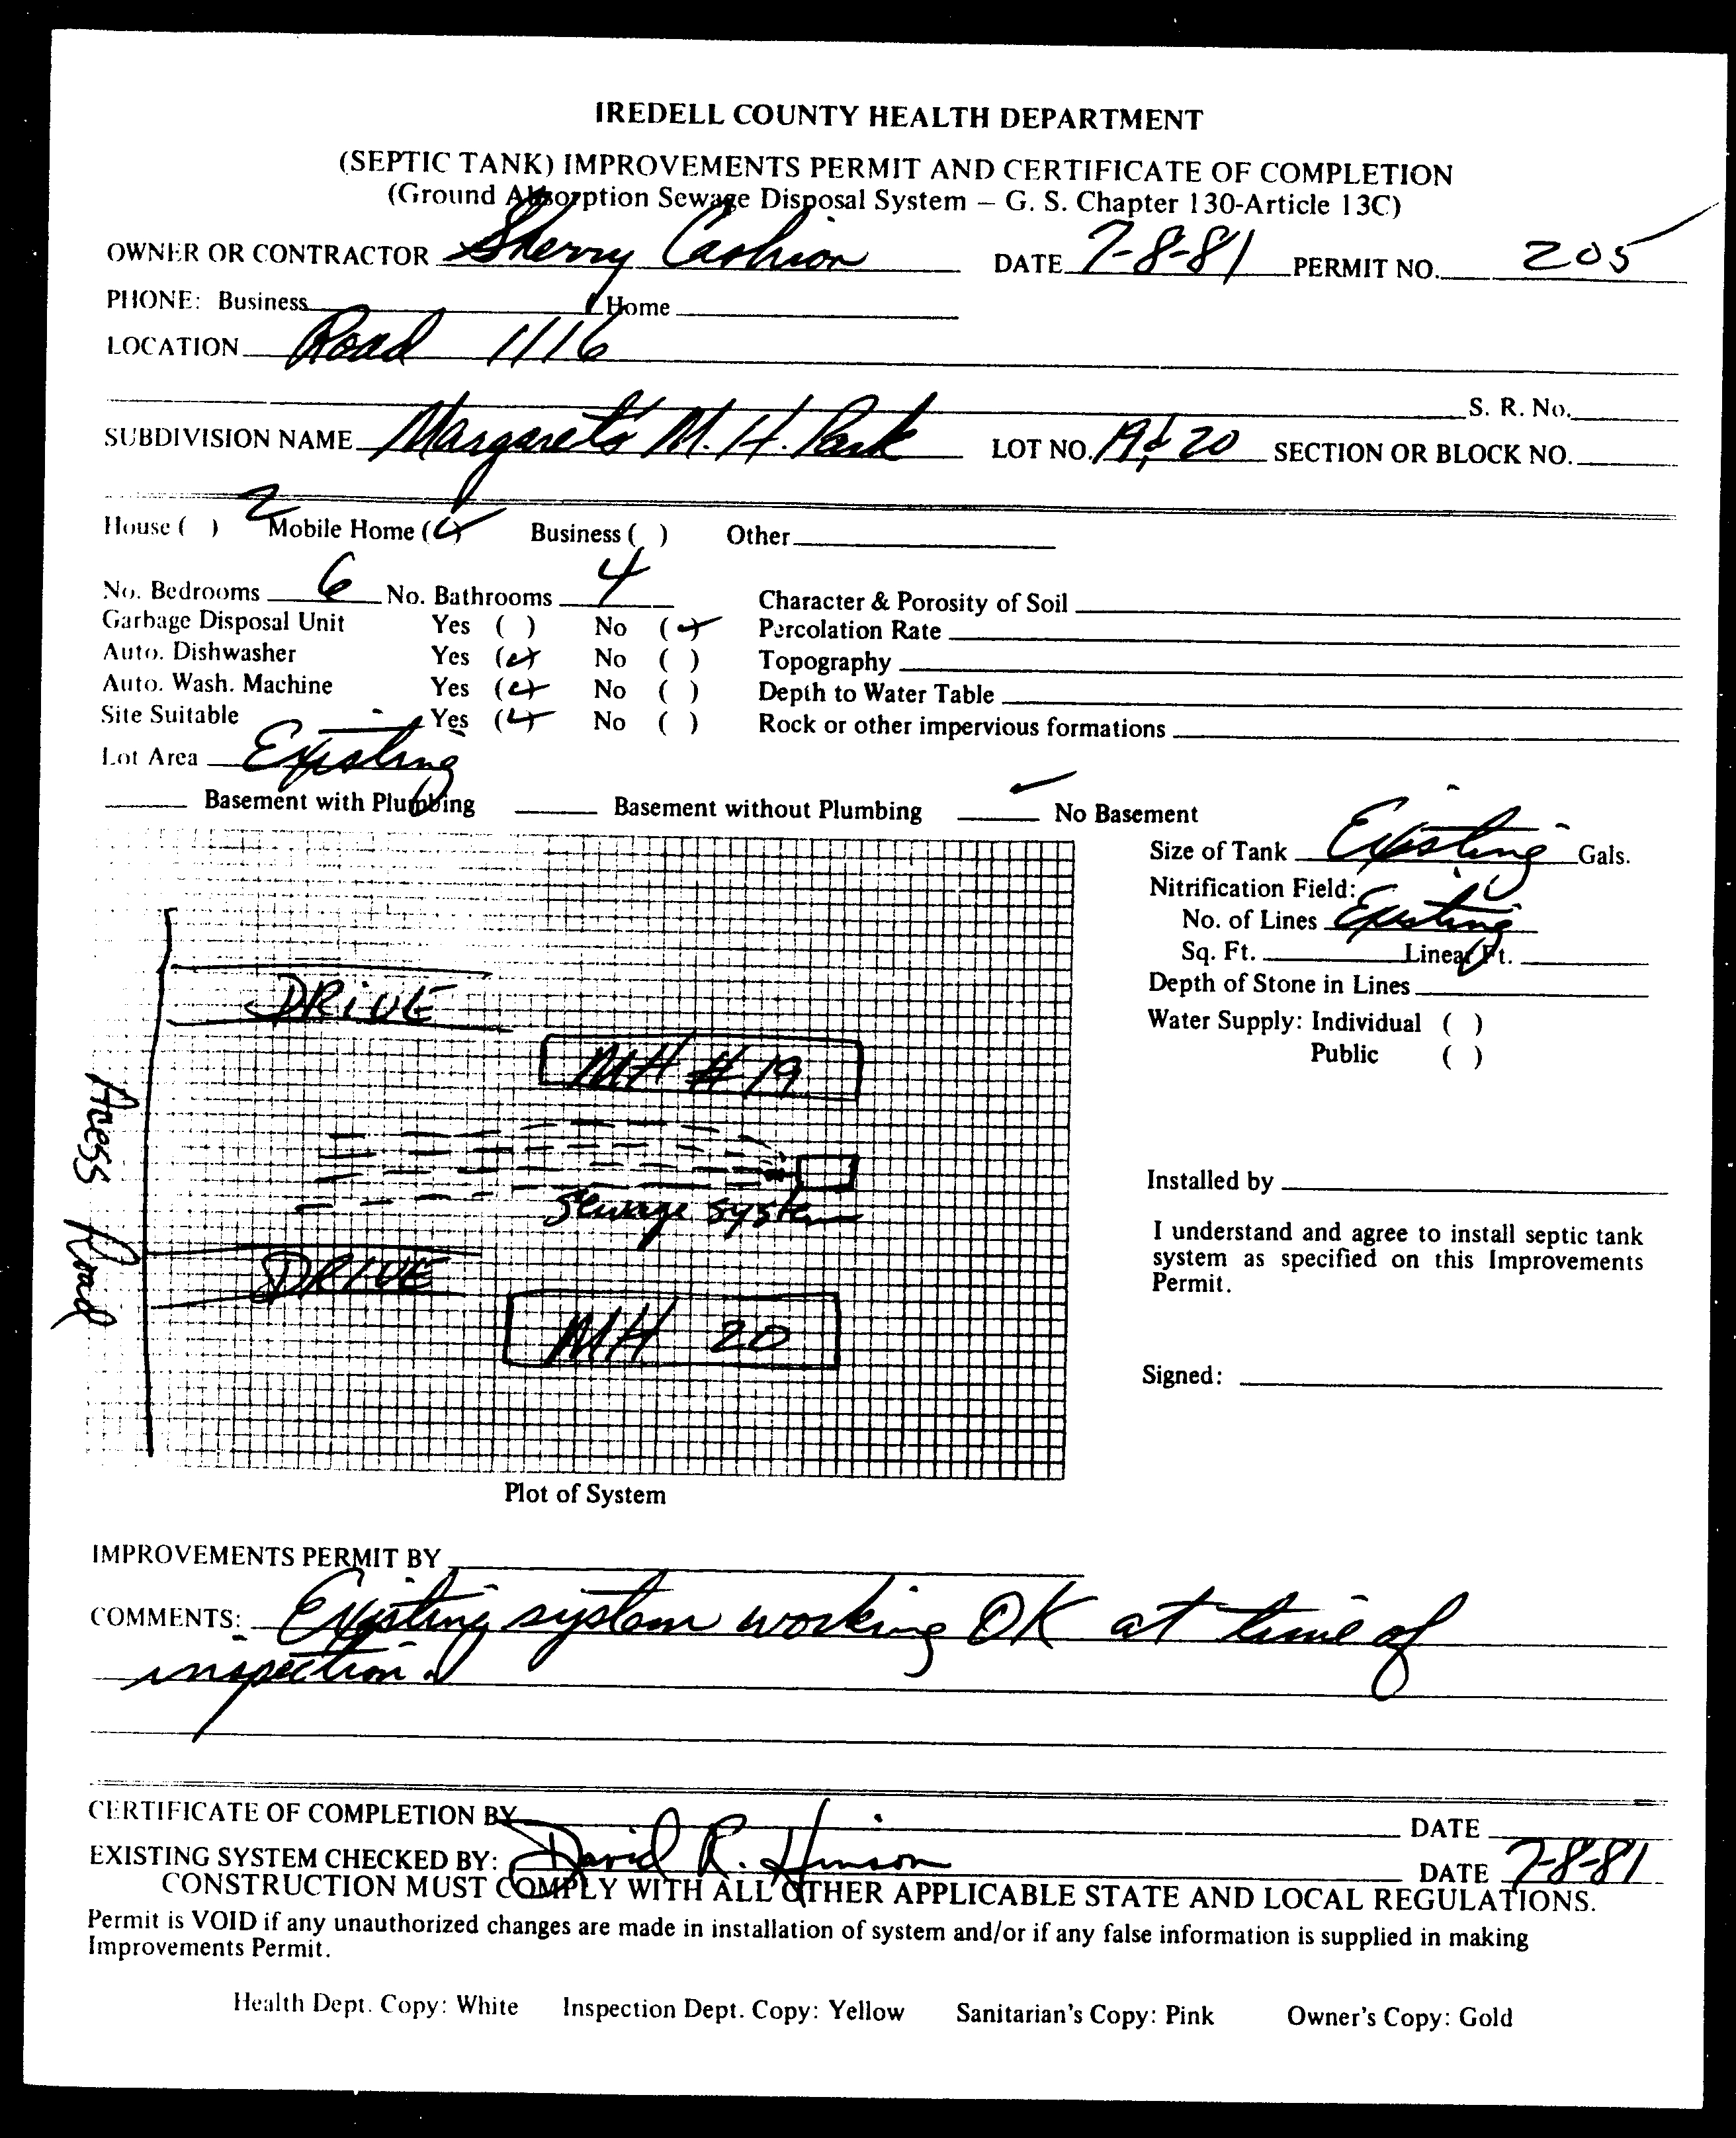 IREDELL COUNTY HEALTH DEPARTMENT
(SEPTIC TANK) IMPROVEMENTS PERMIT AND CERTIFICATE OF COMPLETION
(Ground Absorption Sewage Disposal System – G. S. Chapter 130-Article 13C)
OWNER OR CONTRACTOR Sherry Cashion DATE 7-8-81 PERMIT NO. 205
PHONE: Business Home
LOCATION Road 1116
S. R. No.
SUBDIVISION NAME Margaret's M. H. Park LOT NO. 19 & 20 SECTION OR BLOCK NO.
House ( ) 2 Mobile Home (✓) Business ( ) Other
No. Bedrooms 6 No. Bathrooms 4 Character & Porosity of Soil
Garbage Disposal Unit Yes ( ) No (✓) Percolation Rate
Auto. Dishwasher Yes (✓) No ( ) Topography
Auto. Wash. Machine Yes (✓) No ( ) Depth to Water Table
Site Suitable Yes (✓) No ( ) Rock or other impervious formations
Lot Area Existing
Basement with Plumbing Basement without Plumbing ✓ No Basement
Size of Tank Existing Gals.
Nitrification Field:
No. of Lines Existing
Sq. Ft. Linear Ft.
Depth of Stone in Lines
Water Supply: Individual ( )
Public ( )
Installed by
I understand and agree to install septic tank
system as specified on this Improvements
Permit.
Signed:
DRIVE
MH #19
Sewage system
DRIVE
MH 20
Acess Road
Plot of System
IMPROVEMENTS PERMIT BY
COMMENTS: Existing system working OK at time of
inspection.
CERTIFICATE OF COMPLETION BY DATE
EXISTING SYSTEM CHECKED BY: David R. Hinson DATE 7-8-81
CONSTRUCTION MUST COMPLY WITH ALL OTHER APPLICABLE STATE AND LOCAL REGULATIONS.
Permit is VOID if any unauthorized changes are made in installation of system and/or if any false information is supplied in making
Improvements Permit.
Health Dept. Copy: White Inspection Dept. Copy: Yellow Sanitarian's Copy: Pink Owner's Copy: Gold